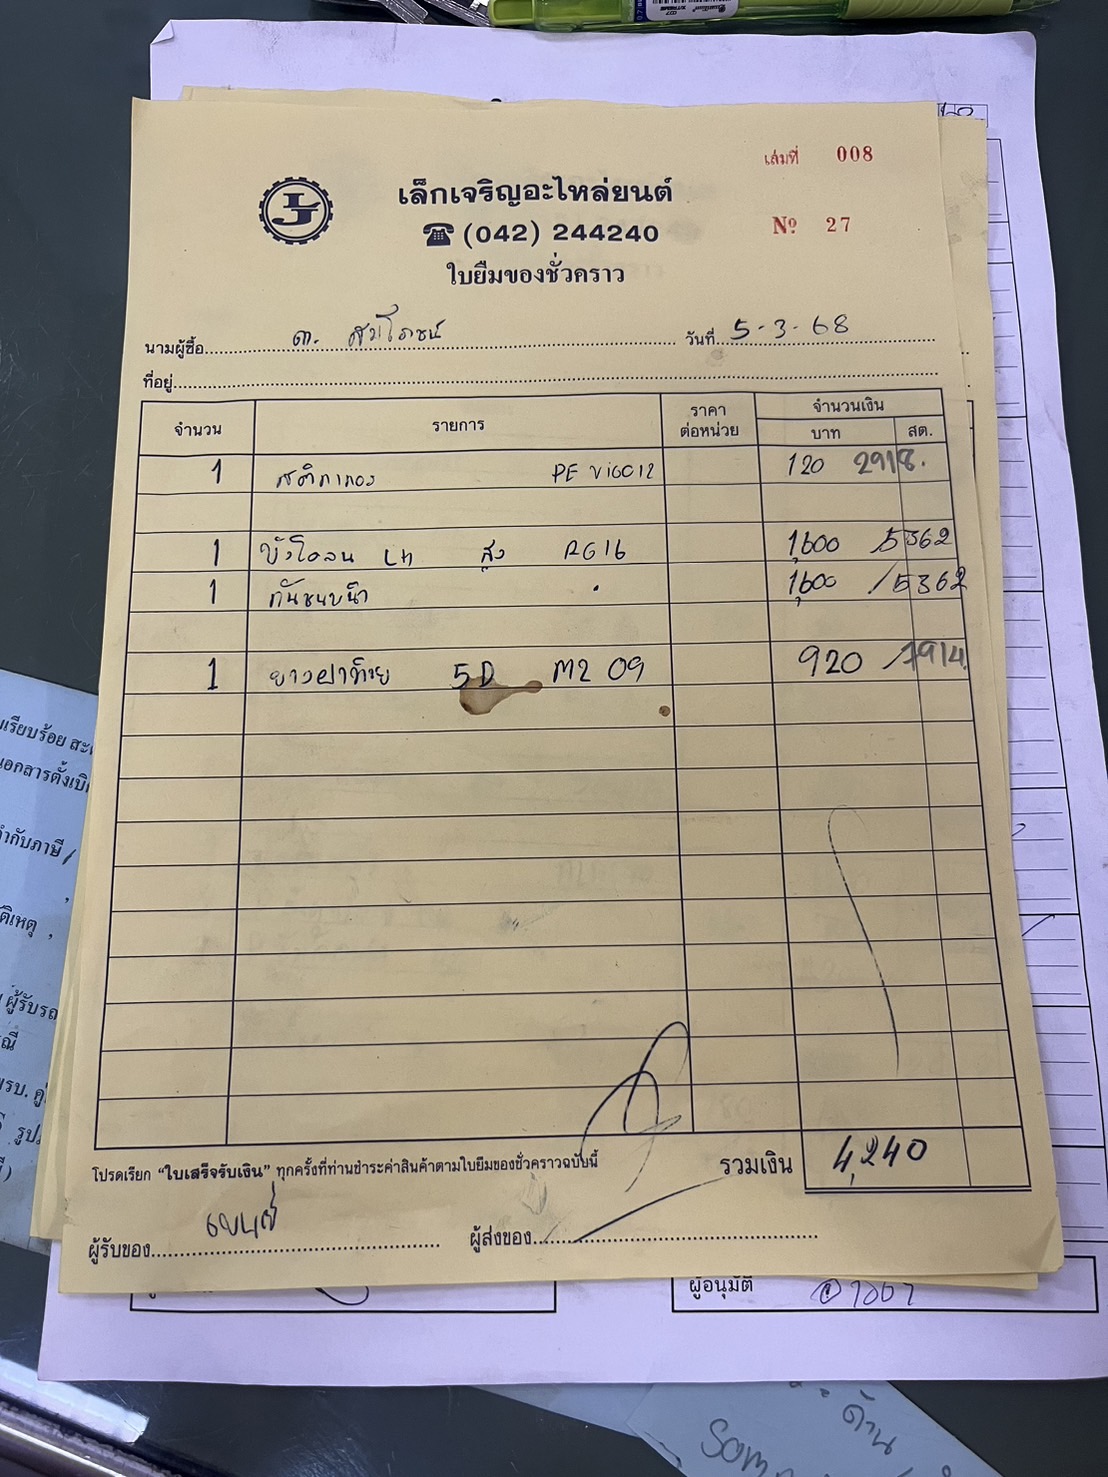 เล่มที่ 008
LJ
เล็กเจริญอะไหล่ยนต์
(042) 244240
Nº 27
ใบยืมของชั่วคราว
นามผู้ซื้อ
วันที่ 5-3-68
ที่อยู่
จำนวน รายการ ราคาต่อหน่วย จำนวนเงิน
บาท สต.
1 PE VIGO12 120 2918.
1 บังโคลน LH สูง RG16 1,600 /5362
1 กันชนหน้า 1,600 /5362
1 ยางฝาท้าย 5D M2 09 920 /1914
โปรดเรียก "ใบเสร็จรับเงิน" ทุกครั้งที่ท่านชำระค่าสินค้าตามใบยืมของชั่วคราวฉบับนี้
รวมเงิน 4,240
ผู้รับของ
ผู้ส่งของ
ผู้อนุมัติ
เรียบร้อย
กำกับภาษี
ผู้รับรถ
พรบ.
ด้าน